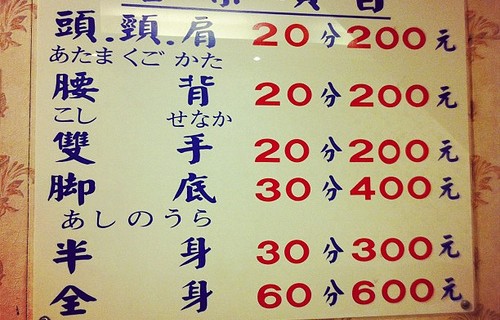 頭.頸.肩 20分200元
あたまくごかた
腰 背 20分200元
こし せなか
雙 手 20分200元
脚 底 30分400元
あしのうら
半 身 30分300元
全 身 60分600元